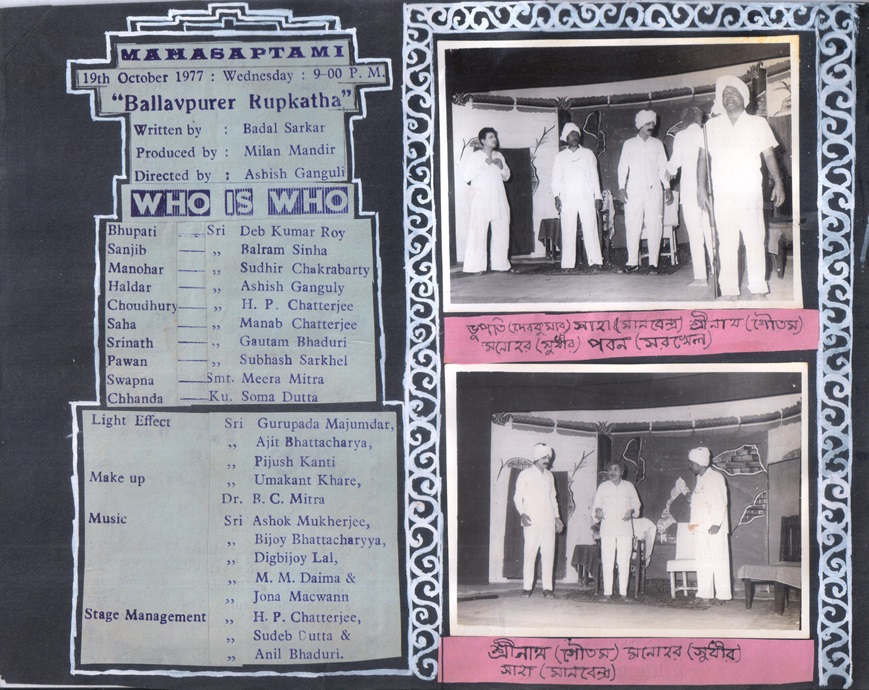 MAHASAPTAMI
19th October 1977 : Wednesday : 9-00 P. M.
"Ballavpurer Rupkatha"
Written by : Badal Sarkar
Produced by : Milan Mandir
Directed by : Ashish Ganguli
WHO IS WHO
Bhupati — Sri Deb Kumar Roy
Sanjib — ,, Balram Sinha
Manohar — ,, Sudhir Chakrabarty
Haldar — ,, Ashish Ganguly
Choudhury — ,, H. P. Chatterjee
Saha — ,, Manab Chatterjee
Srinath — ,, Gautam Bhaduri
Pawan — ,, Subhash Sarkhel
Swapna — Smt. Meera Mitra
Chhanda — Ku. Soma Dutta
Light Effect Sri Gurupada Majumdar,
,, Ajit Bhattacharya,
,, Pijush Kanti
Make up ,, Umakant Khare,
Dr. B. C. Mitra
Music Sri Ashok Mukherjee,
,, Bijoy Bhattacharyya,
,, Digbijoy Lal,
,, M. M. Daima &
,, Jona Macwann
Stage Management ,, H. P. Chatterjee,
,, Sudeb Dutta &
,, Anil Bhaduri.
ভূপতি (দেবকুমার) সাহা (মানবেন্দ্র) শ্রীনাথ (গৌতম)
মনোহর (সুধীর) পবন (সরখেল)
শ্রীনাথ (গৌতম) মনোহর (সুধীর)
সাহা (মানবেন্দ্র)